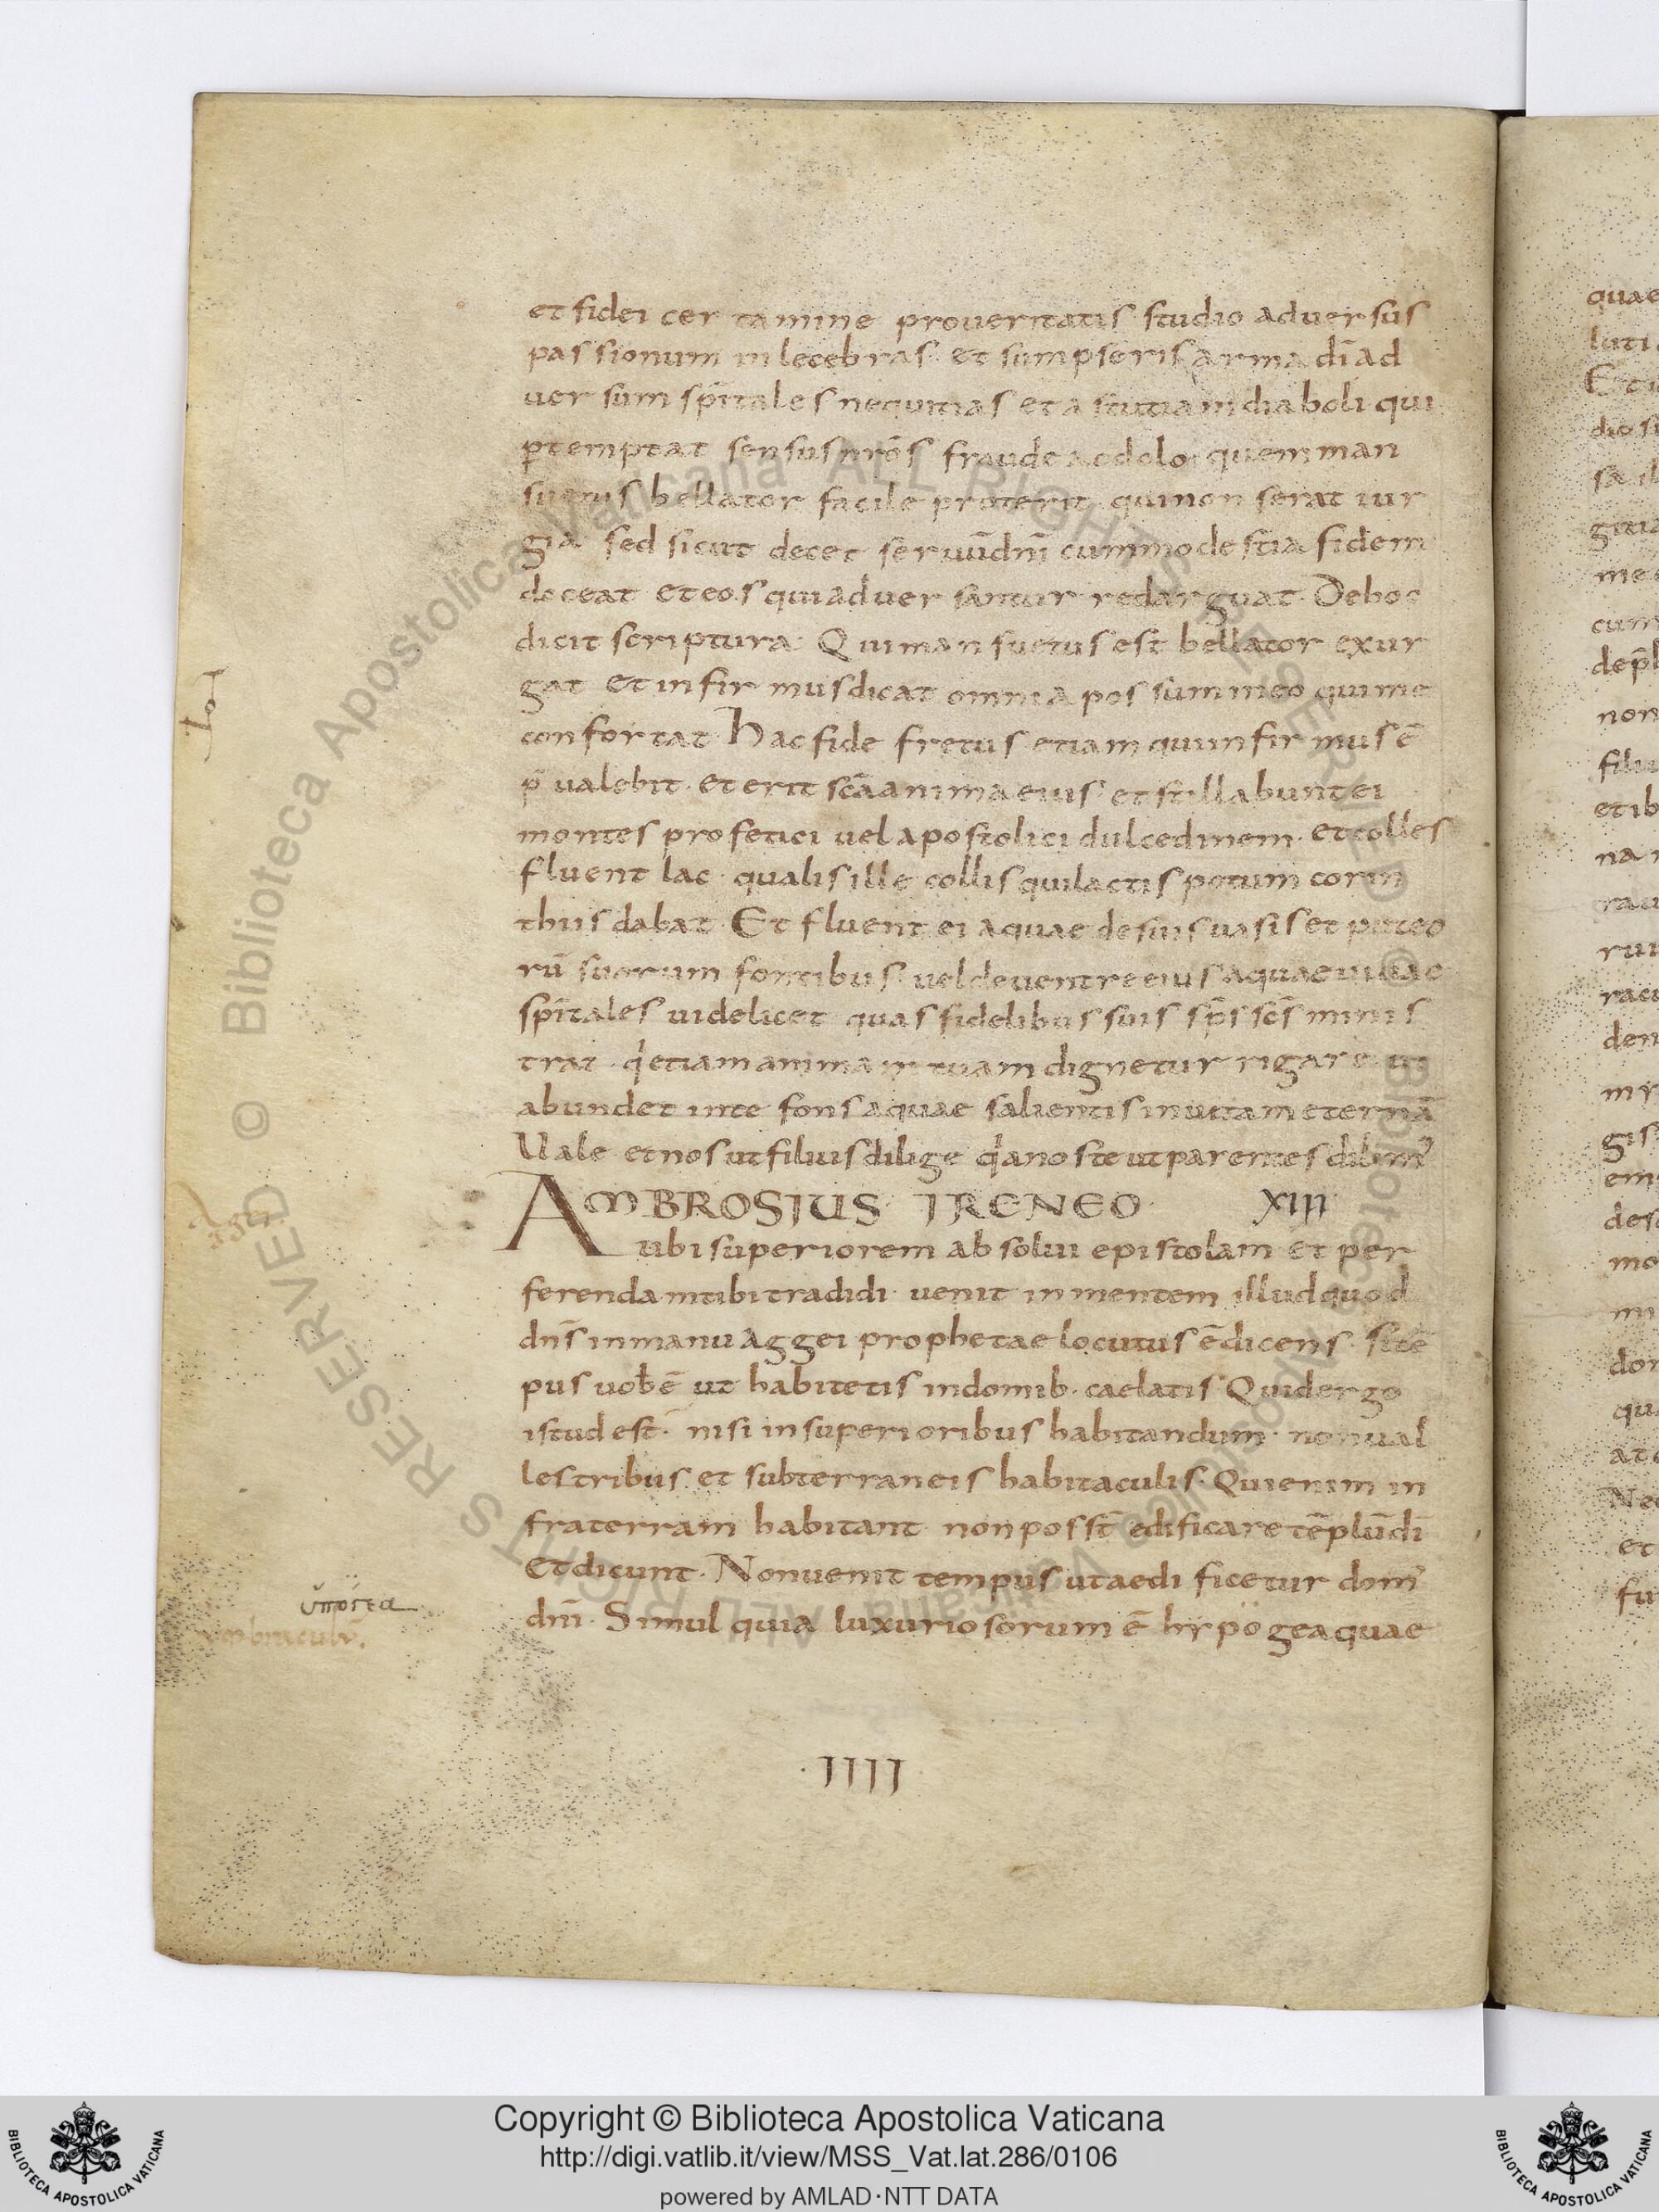 et fidei certamine pro ueritatis studio aduersus
passionum inlecebras et sumpseris arma dī ad
uersum sp̄itales nequitias et astutiam diaboli qui
p̱temptat sensus nr̄os fraude ac dolo quem man
suetus bellator facile proterit qui non serat iur
gia sed sicut decet seruū dnī cum modestia fidem
doceat et eos qui aduersantur redarguat. De hoc
dicit scriptura. Qui mansuetus est bellator exur
gat et infirmus dicat omnia possum in eo qui me
confortat. Hac fide fretus etiam qui infirmus ē
p̄ualebit. et erit scā anima eius et stillabunt ei
montes profetici uel apostolici dulcedinem. et colles
fluent lac. qualis ille collis qui lactis potum corin
thiis dabat. Et fluent ei aquae de suis uasis et puteo
rū suorum fontibus. uel de uentre eius aquae uiuae
sp̄itales uidelicet quas fidelibus suis sp̄s scs̄ minis
trat. q̇ etiam animam tuam dignetur rigare ut
abundet in te fons aquae salientis in uitam eternā
Uale et nos ut filius dilige q̇a nos te ut parentes diligim᾿
AMBROSIUS IRENEO XIII
ubi superiorem absolui epistolam et per
ferendam tibi tradidi uenit in mentem illud quod
dns̄ in manu Aggei prophetae locutus ē dicens. si tē
pus uob̄ ē ut habitetis in domib. caelatis. Quid ergo
istud est. nisi in superioribus habitandum. non ual
lestribus et subterraneis habitaculis. Qui enim in
fra terram habitant non possт̄ edificare tēplū dī
Et dicunt. Non uenit tempus ut aedificetur dom᾿
dnī. Simul quia luxuriosorum ē hypogea quae
Agei
umbraculū.
IIII
Copyright © Biblioteca Apostolica Vaticana
http://digi.vatlib.it/view/MSS_Vat.lat.286/0106
powered by AMLAD·NTT DATA
BIBLIOTECA APOSTOLICA VATICANA
BIBLIOTECA APOSTOLICA VATICANA
© Biblioteca Apostolica Vaticana ALL RIGHTS RESERVED © Biblioteca Apostolica Vaticana ALL RIGHTS RESERVED